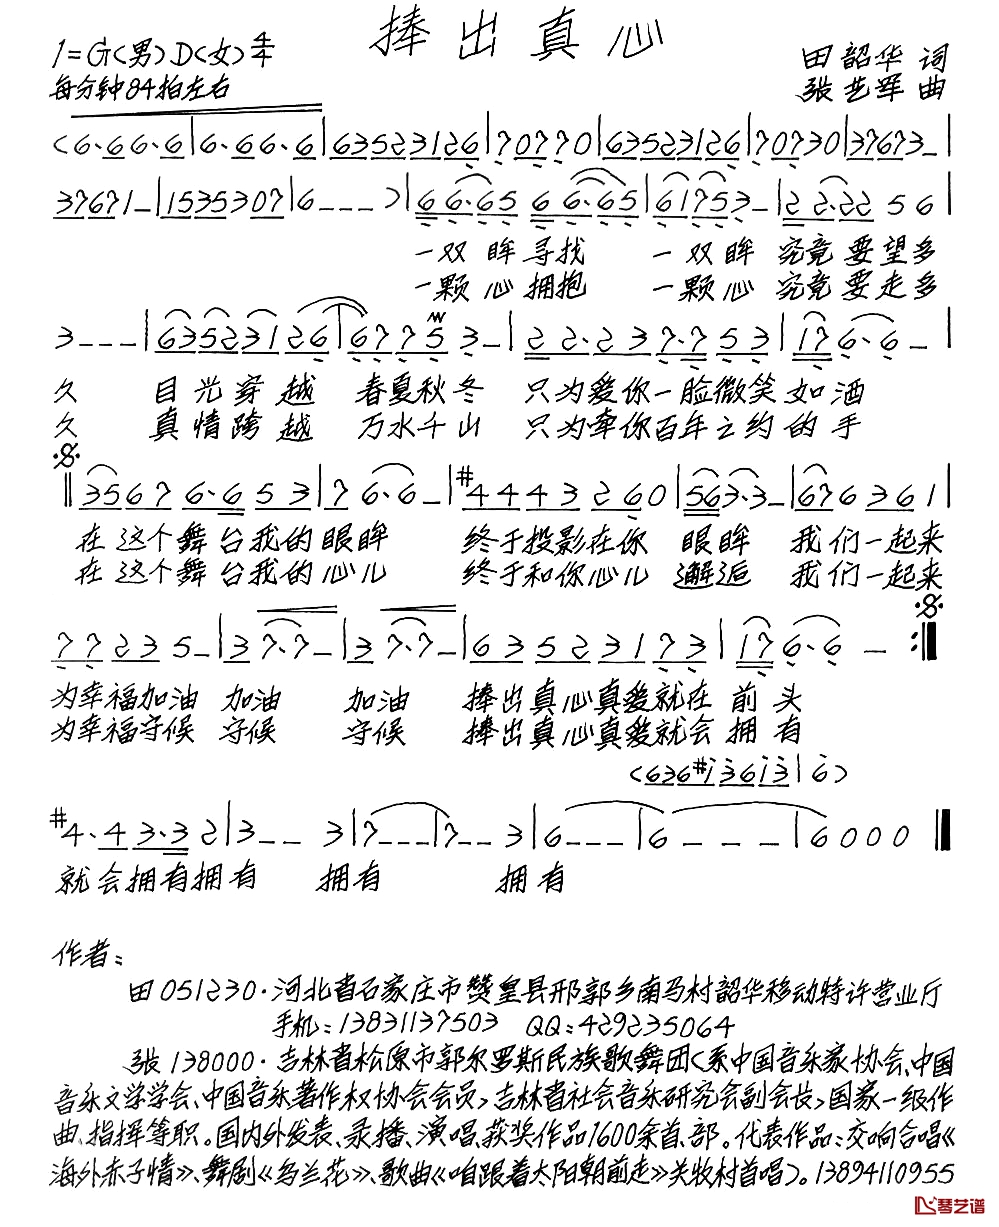 捧出真心
1=G(男)D(女)4/4
田韶华 词
每分钟84拍左右
张艺军 曲
(6·6 6·6|6·6 6·6|63523126|70770|63523126|70730|37673–|
37671–|1535307|6–––)|6 6·65 6 6·65|61753–|2 2·22 5 6|
一双眸寻找 一双眸 究竟要望多
一颗心拥抱 一颗心 究竟要走多
3–––|63523126|6775 3–|2 2·2377 53|17 6·6–|
久 目光穿越 春夏秋冬 只为爱你一脸微笑如酒
久 真情跨越 万水千山 只为牵你百年之约的手
‖3567 6·6 53|7 6·6–|#4443 260|563·3–|676361|
在这个舞台我的眼眸 终于投影在你 眼眸 我们一起来
在这个舞台我的心儿 终于和你心儿 邂逅 我们一起来
77235–|3 7·7–|3 7·7–|63523173|17 6·6 –:‖
为幸福加油 加油 加油 捧出真心真爱就在 前头
为幸福守候 守候 守候 捧出真心真爱就会 拥有
(636#i36i3|6)
#4·4 3·3 2|3–– 3|7–––|7–– 3|6–––|6 – – –|6000‖
就会拥有拥有 拥有 拥有
作者:
田 051230·河北省石家庄市赞皇县邢郭乡南马村韶华移动特许营业厅
手机:13831137503 QQ:429235064
张 138000·吉林省松原市郭尔罗斯民族歌舞团(系中国音乐家协会、中国
音乐文学学会、中国音乐著作权协会会员,吉林省社会音乐研究会副会长,国家一级作
曲、指挥等职。国内外发表、录播、演唱、获奖作品1600余首、部。代表作品:交响合唱《
海外赤子情》、舞剧《乌兰花》、歌曲《咱跟着太阳朝前走》关牧村首唱)。13894110955
琴艺谱